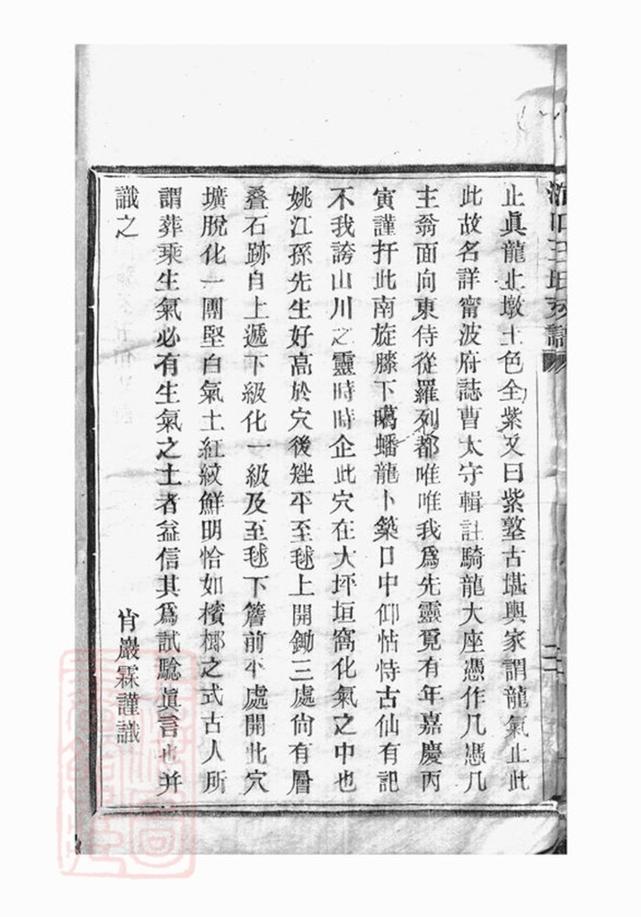 止眞龍止墩土色全紫又曰紫墪古堪輿家謂龍氣止此
此故名詳甯波府誌曹太守輯註騎龍大座憑作几憑几
主翁面向東侍從羅列都唯唯我爲先靈覓有年嘉慶丙
寅謹扦此南旋膝下暍蟠龍卜築口中仰怙恃古仙有記
不我誇山川之靈時時企此穴在大坪垣窩化氣之中也
姚江孫先生好高於穴後矬平至毬上開鋤三處尙有層
叠石跡自上遞下級化一級及至毬下簷前平處開此穴
壙脫化一團堅白氣土紅紋鮮明恰如檳榔之式古人所
謂葬乘生氣必有生氣之土者益信其爲試騐眞言也并
識之
肯巖霖謹識